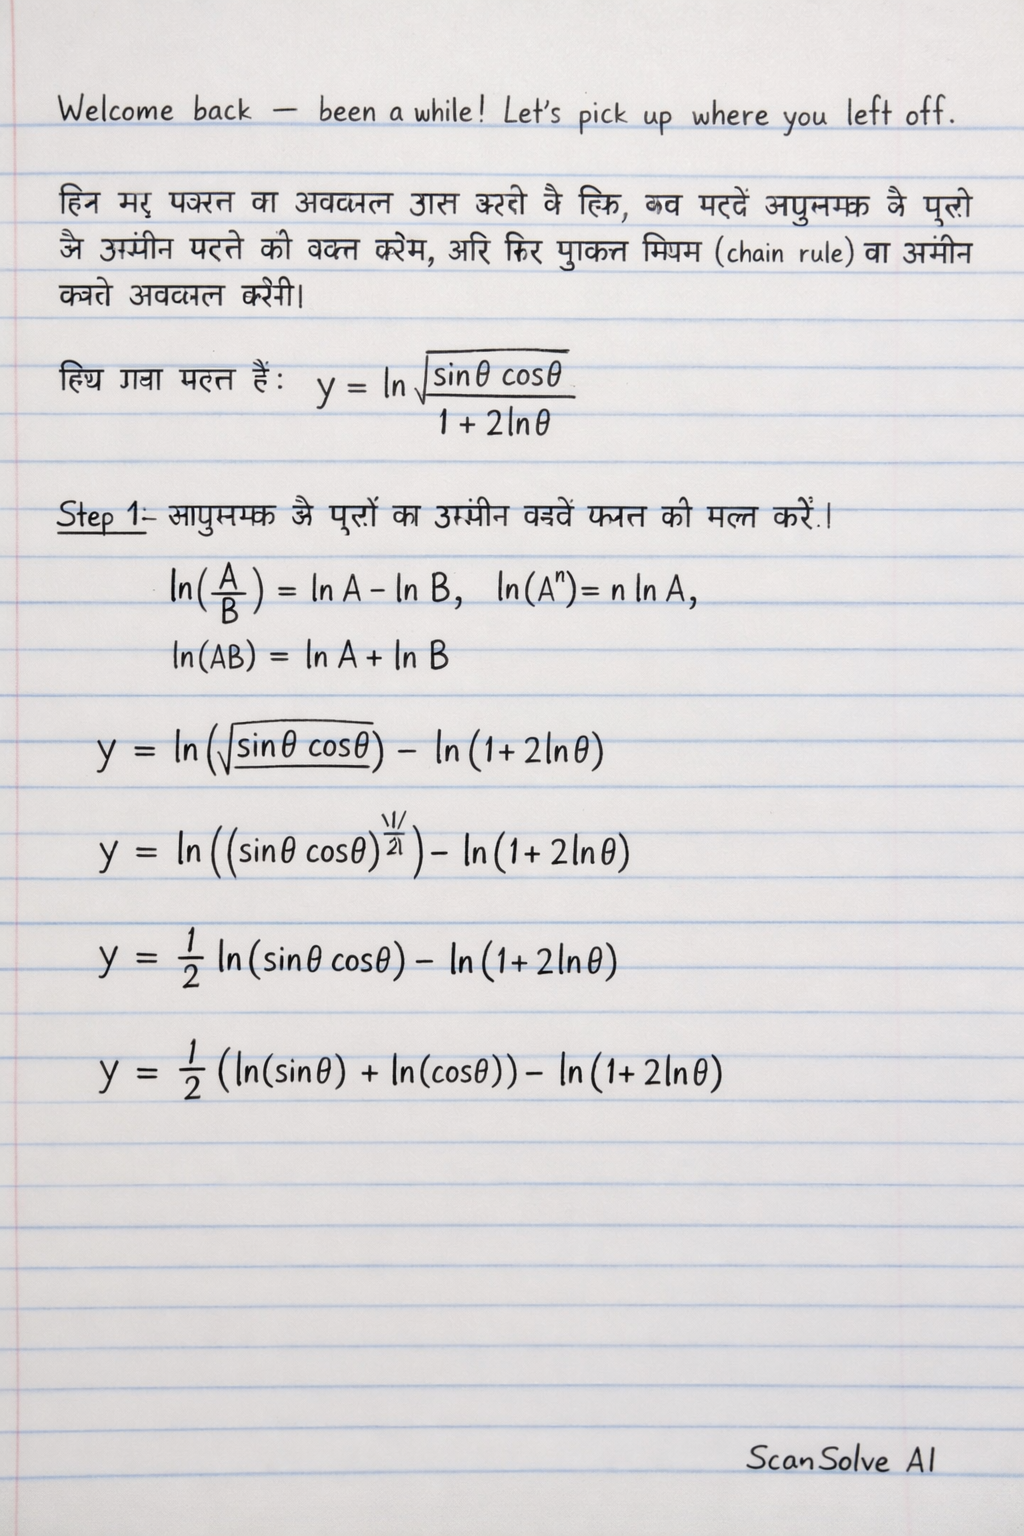 Welcome back — been a while! Let's pick up where you left off.
हिन मर् पक्रत वा अवकलत उास करतो वे त्कि, कव मददें अपुलमक के पुलो
जै उम्मीन पदते को वक्त करेम, अरि फिर पुाकत्त मियम (chain rule) वा अमीन
कवते अवकलत करेनी।
हिथ गवा मदत हैं: y = ln √(sinθ cosθ) / 1 + 2lnθ
Step 1:- आपुलमक जै पुलों का उम्मीन वदवें फलत को मल्त करें.।
ln(A/B) = ln A - ln B, ln(Aⁿ)= n ln A,
ln(AB) = ln A + ln B
y = ln(√(sinθ cosθ)) - ln(1+ 2lnθ)
y = ln((sinθ cosθ)) - ln(1+ 2lnθ)
y = 1/2 ln(sinθ cosθ) - ln(1+ 2lnθ)
y = 1/2 (ln(sinθ) + ln(cosθ)) - ln(1+ 2lnθ)
ScanSolve AI